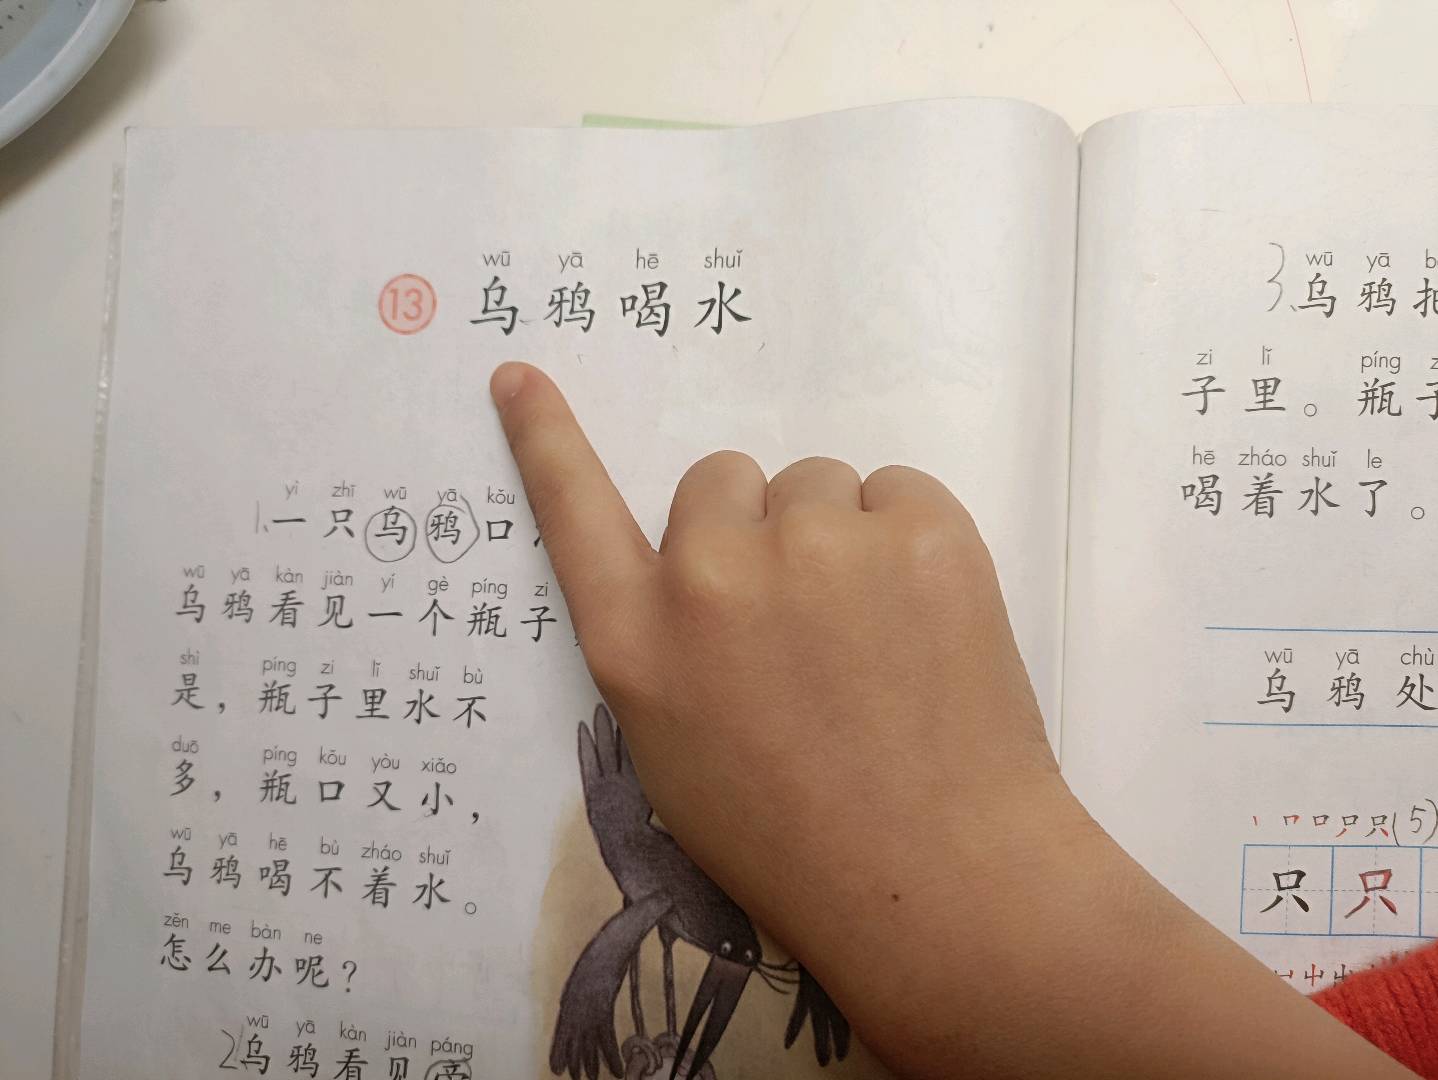 wū yā hē shuǐ
13 乌鸦喝水
yì zhī wū yā kǒu
1、一只乌鸦口
wū yā kàn jiàn yí gè píng zi
乌鸦看见一个瓶子
shì píng zi lǐ shuǐ bù
是，瓶子里水不
duō píng kǒu yòu xiǎo
多，瓶口又小，
wū yā hē bù zháo shuǐ
乌鸦喝不着水。
zěn me bàn ne
怎么办呢？
wū yā kàn jiàn páng
2乌鸦看见旁
wū yā
3、乌鸦
zi lǐ píng
子里。瓶子
hē zháo shuǐ le
喝着水了。
wū yā chù
乌鸦处
(5)
只只